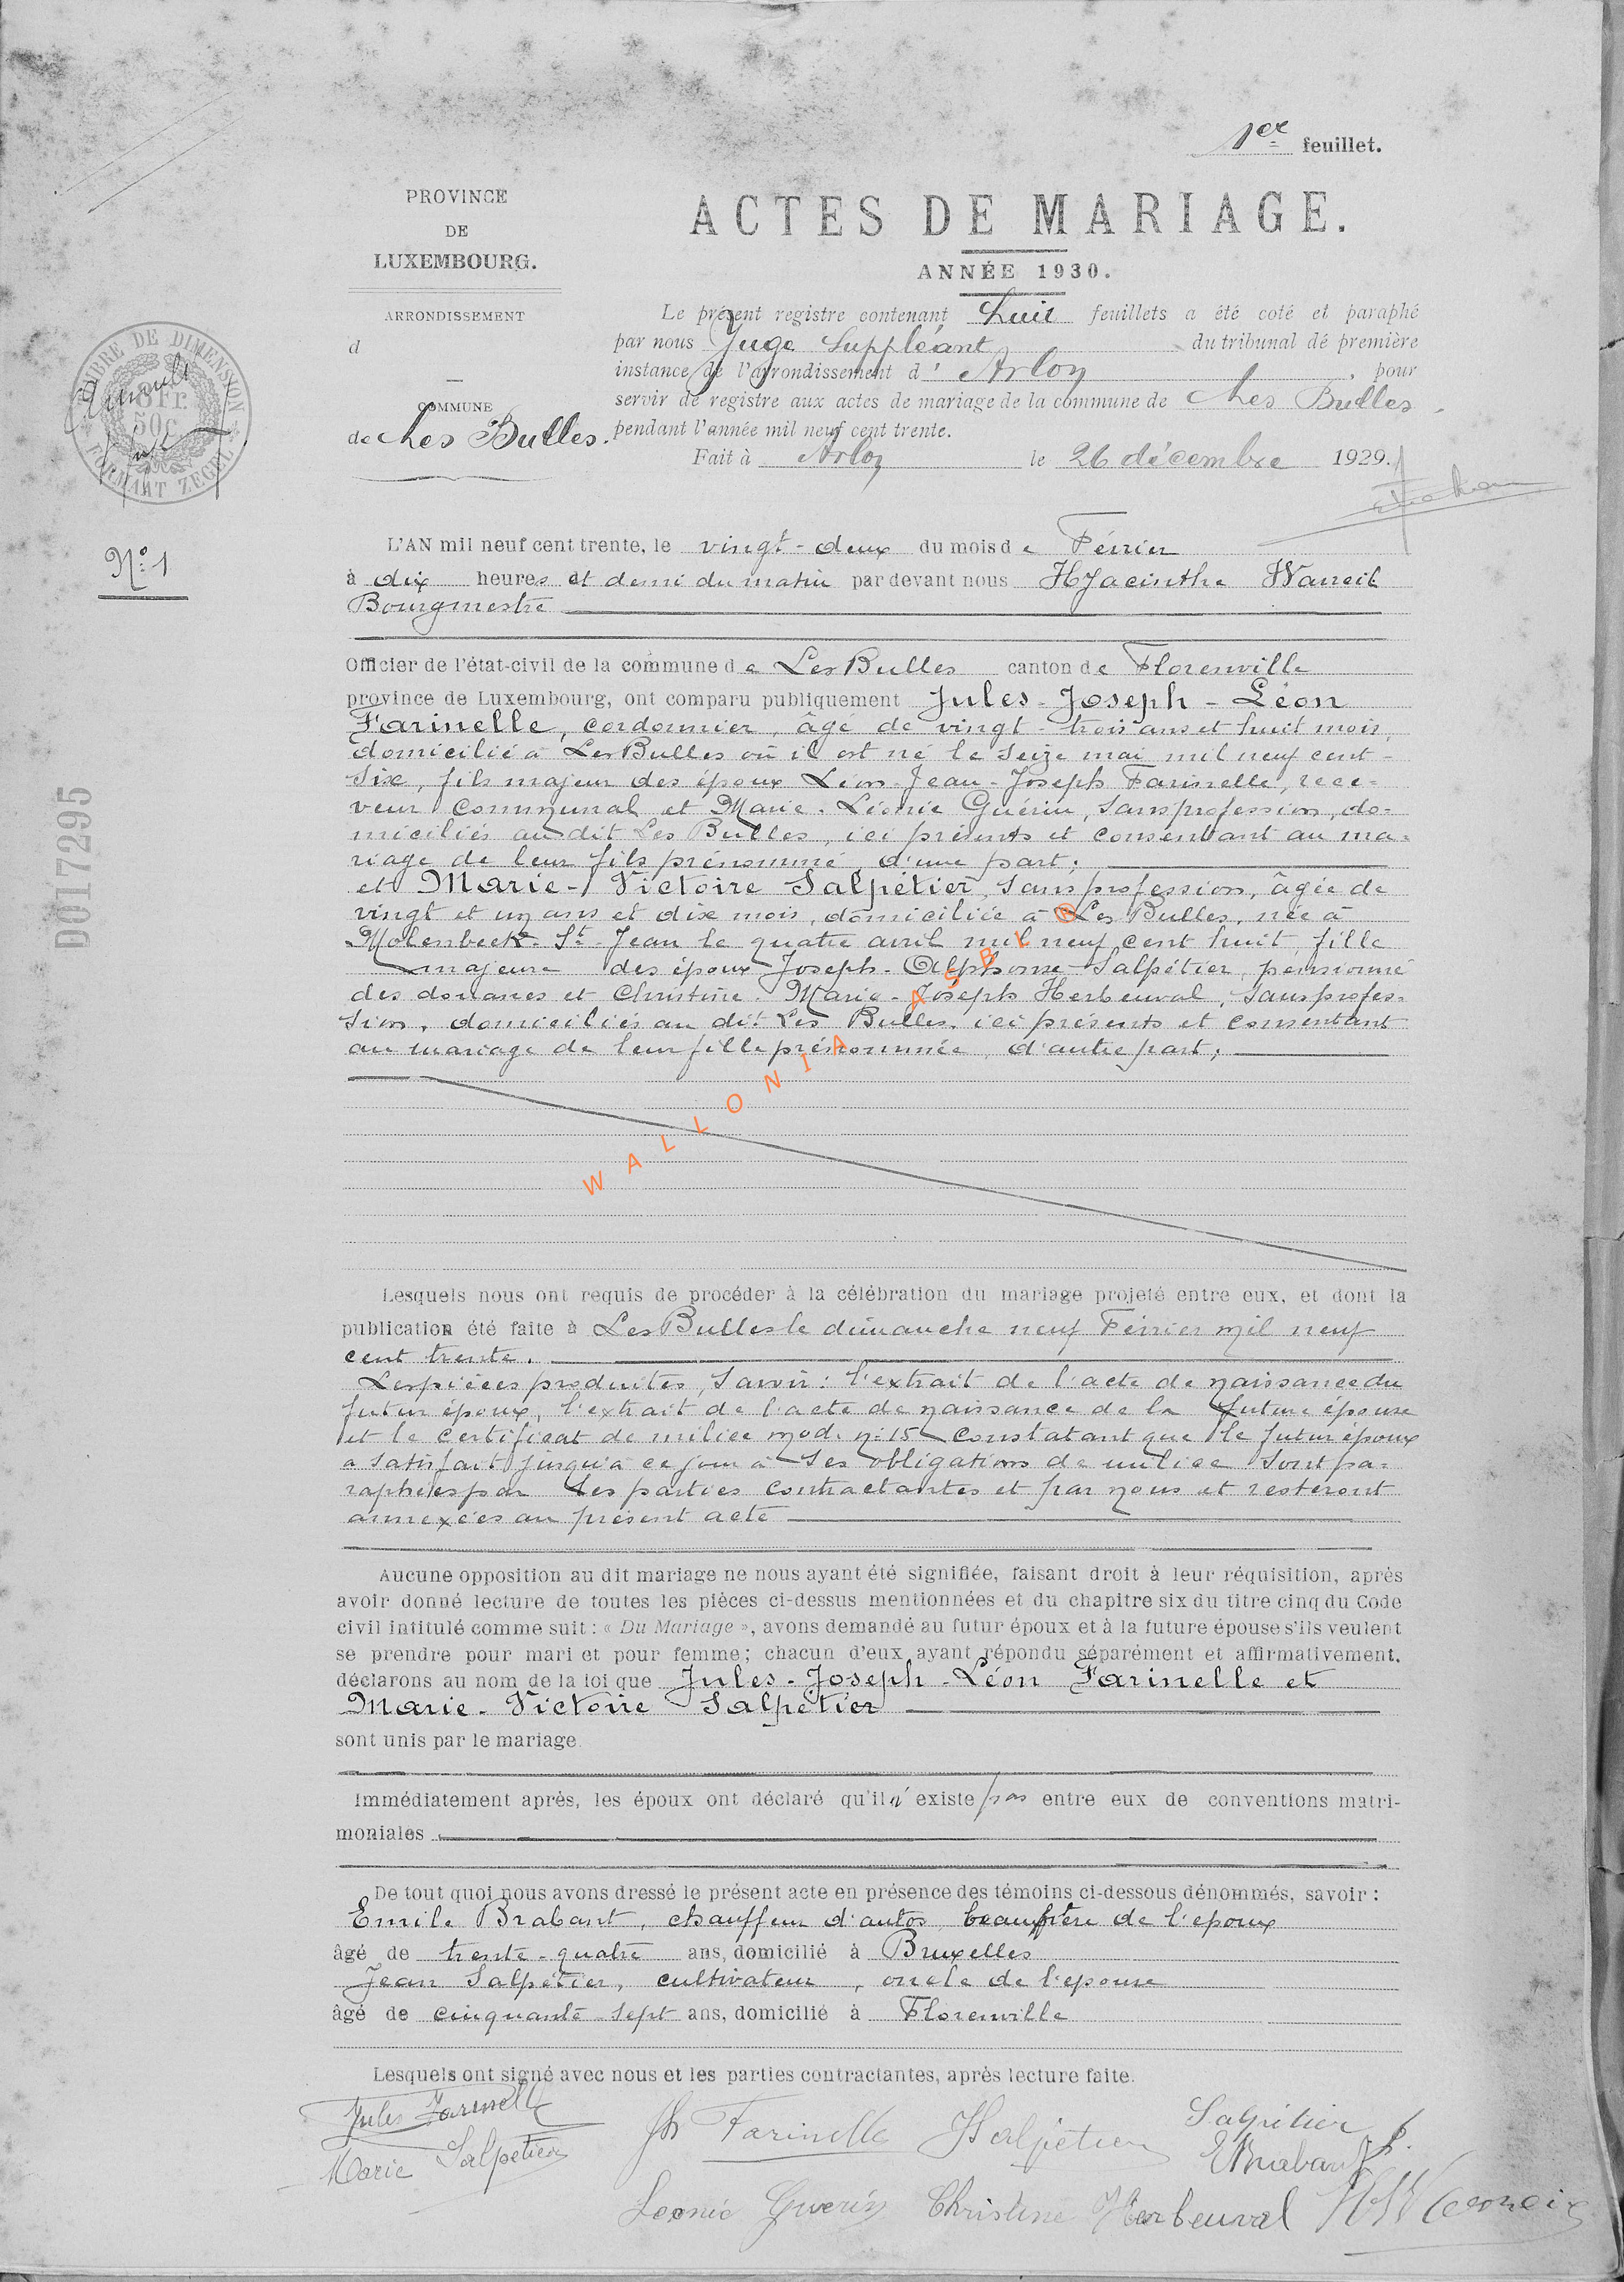 1er feuillet.
PROVINCE
DE
LUXEMBOURG.
ARRONDISSEMENT
d
COMMUNE
de Les Bulles.
ACTES DE MARIAGE.
ANNÉE 1930.
Le présent registre contenant huit feuillets a été coté et paraphé
par nous Juge Suppléant du tribunal de première
instance de l'arrondissement d' Arlon, pour
servir de registre aux actes de mariage de la commune de Les Bulles
pendant l'année mil neuf cent trente.
Fait à Arlon le 26 décembre 1929.
TIMBRE DE DIMENSION
8 Fr.
50c
FORMAAT ZEGEL
N° 1
D017295
L'AN mil neuf cent trente, le vingt-deux du mois de Février
à dix heures et demi du matin par devant nous Hyacinthe
Bourgmestre
Officier de l'état-civil de la commune de Les Bulles canton de Florenville
province de Luxembourg, ont comparu publiquement Jules-Joseph-Léon
Farinelle, cordonnier, âgé de vingt-trois ans et huit mois,
domicilié à Les Bulles où il est né le seize mai mil neuf cent-
six, fils majeur des époux Léon-Jean-Joseph Farinelle, rece-
veur communal et Marie-Léonie Guérin, sans profession, do-
miciliés au dit Les Bulles, ici présents et consentant au ma-
riage de leur fils prénommé, d'une part;
et Marie-Victoire Salpétier, sans profession, âgée de
vingt et un ans et dix mois, domiciliée à Les Bulles, née à
Molenbeek-St-Jean le quatre avril mil neuf cent huit, fille
majeure des époux Joseph-Alphonse Salpétier, pensionné
des douanes et Christine-Marie-Joseph Herbeuval, sans profes-
sion, domiciliés au dit Les Bulles, ici présents et consentant
au mariage de leur fille prénommée, d'autre part;
WALLONIA ASBL ®
Lesquels nous ont requis de procéder à la célébration du mariage projeté entre eux, et dont la
publication été faite à Les Bulles le dimanche neuf Février mil neuf
cent trente.
Les pièces produites, savoir: l'extrait de l'acte de naissance du
futur époux, l'extrait de l'acte de naissance de la future épouse
et le certificat de milice mod. n° 15 constatant que le futur époux
a satisfait jusqu'à ce jour à ses obligations de milice sont pa-
raphées par les parties contractantes et par nous et resteront
annexées au présent acte
Aucune opposition au dit mariage ne nous ayant été signifiée, faisant droit à leur réquisition, après
avoir donné lecture de toutes les pièces ci-dessus mentionnées et du chapitre six du titre cinq du Code
civil intitulé comme suit : « Du Mariage », avons demandé au futur époux et à la future épouse s'ils veulent
se prendre pour mari et pour femme; chacun d'eux ayant répondu séparément et affirmativement,
déclarons au nom de la loi que Jules-Joseph-Léon Farinelle et
Marie-Victoire Salpétier
sont unis par le mariage
Immédiatement après, les époux ont déclaré qu'il n'existe pas entre eux de conventions matri-
moniales
De tout quoi nous avons dressé le présent acte en présence des témoins ci-dessous dénommés, savoir :
Emile Brabant, chauffeur d'autos, beaufrère de l'epoux
âgé de trente-quatre ans, domicilié à Bruxelles
Jean Salpétier, cultivateur, oncle de l'epouse
âgé de cinquante-sept ans, domicilié à Florenville
Lesquels ont signé avec nous et les parties contractantes, après lecture faite.
Jules Farinelle
Farinelle JSalpétier Salpétier J.
Marie Salpétier
EBrabant
Léonie Guérin Christine Herbeuval